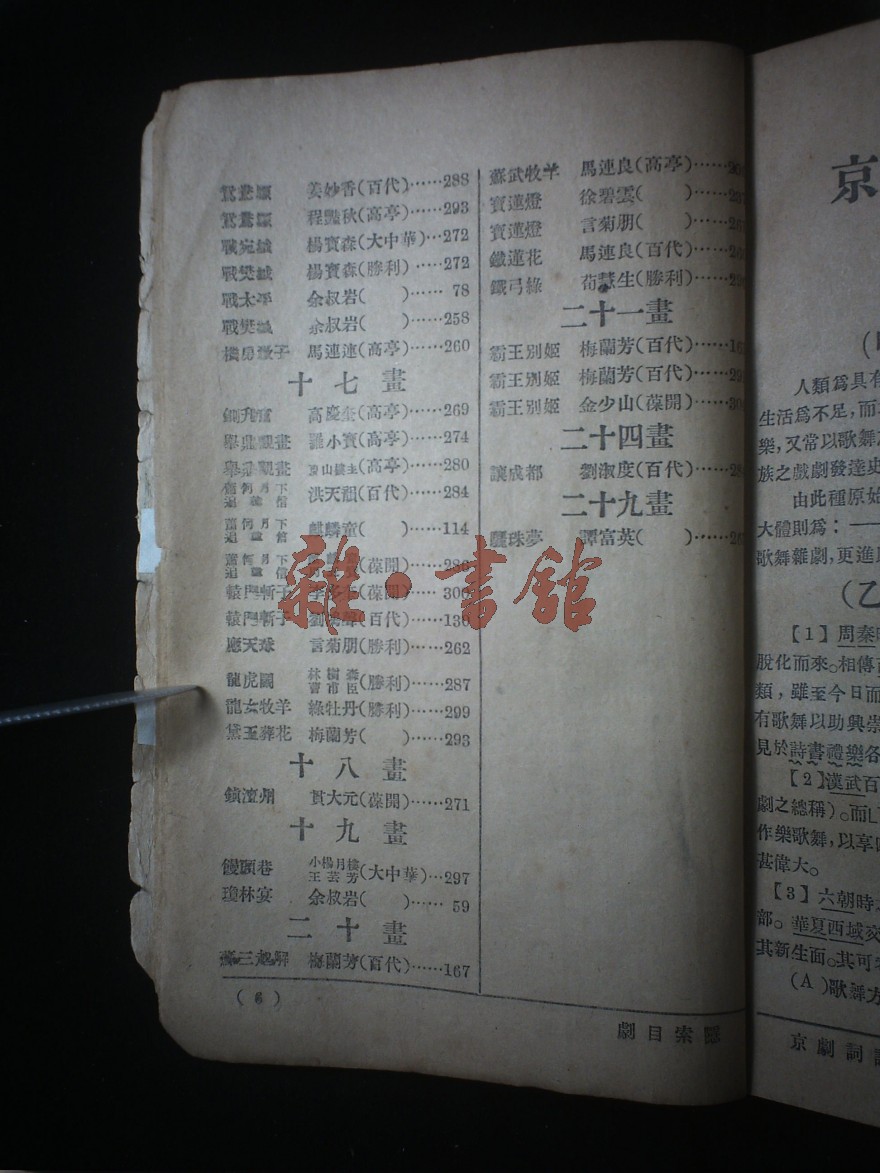 姜妙香(百代)……288
程艷秋(高亭)…293
戰宛城 楊寶森(大中華)…272
戰樊城 楊寶森(勝利)…272
戰太平 余叔岩( )…… 78
戰樊城 余叔岩( )……258
馬連連(高亭)…260
十七畫
高慶奎(高亭)…269
舉鼎觀畫 羅小寶(高亭)…274
舉鼎觀畫 東山樓主(高亭)…280
蕭何月下追韓信 洪天祖(百代)…284
蕭何月下追韓信 麒麟童( )……114
蕭何月下追韓信 (葆開)…286
轅門斬子 (葆開)…
轅門斬子 (百代)…
應天球 言菊朋(勝利)…262
龍虎鬭 林樹森 (勝利)…287
龍女牧羊 綠牡丹(勝利)…299
黛玉葬花 梅蘭芳( )……293
十八畫
鎮潭州 貫大元(葆開)……271
十九畫
饅頭巷 小楊月樓 王芸芳(大中華)…297
瓊林宴 余叔岩( )…… 59
二十畫
蘇三起解 梅蘭芳(百代)……167
(6)
蘇武牧羊 馬連良(高亭)……
寶蓮燈 徐碧雲( )……
寶蓮燈 言菊朋( )……
鐵蓮花 馬連良(百代)……
鐵弓緣 荀慧生(勝利)……
二十一畫
霸王別姬 梅蘭芳(百代)……
霸王別姬 梅蘭芳(百代)……
霸王別姬 金少山(葆開)……
二十四畫
讓成都 劉淑度(百代)……
二十九畫
驪珠夢 譚富英( )……
劇目索
雜·書館
京
人類爲具有
生活爲不足,而
樂,又常以歌舞
族之戲劇發達史
由此種原始
大體則爲:——
歌舞雜劇,更進
(乙
【1】周秦
脫化而來。相傳
類,雖至今日而
有歌舞以助興
見於詩書禮樂各
【2】漢武百
劇之總稱)。而
作樂歌舞,以享
甚偉大。
【3】六朝時
部。華夏西域交
其新生面。其可
(A)歌舞方
京劇詞